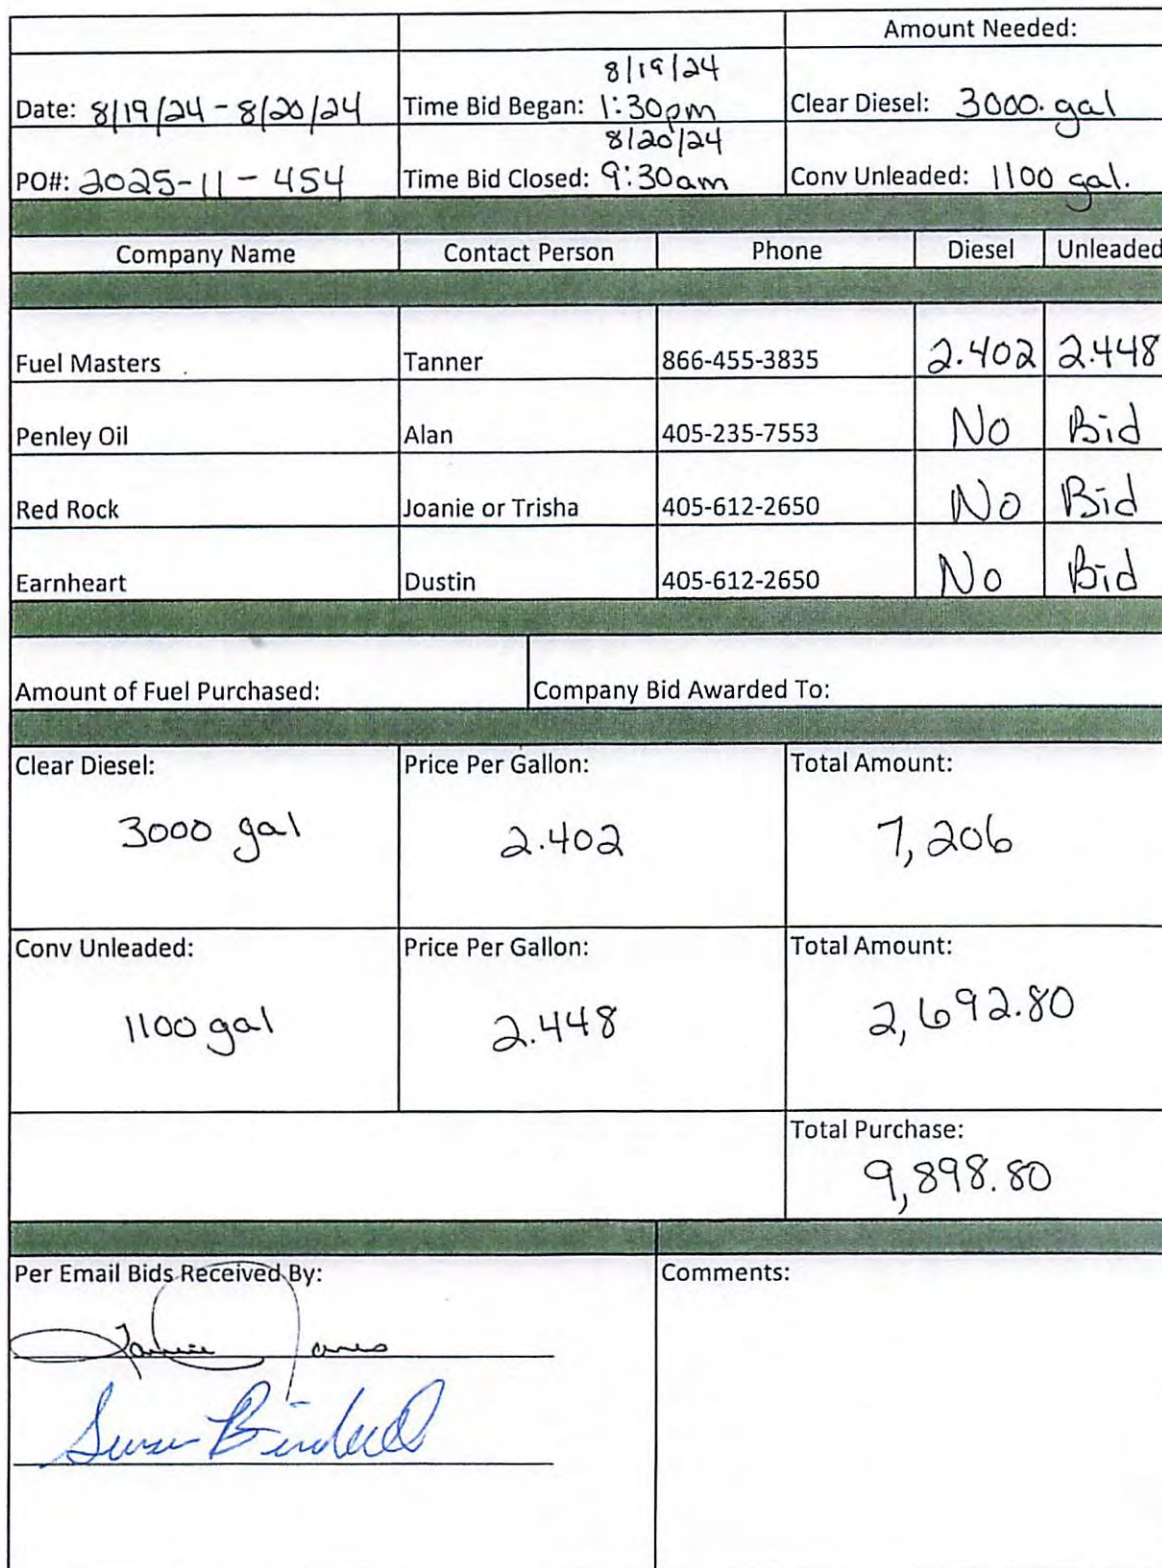 Amount Needed:
8/19/24
Date: 8/19/24 - 8/20/24 Time Bid Began: 1:30pm Clear Diesel: 3000. gal
8/20/24
PO#: 2025-11-454 Time Bid Closed: 9:30am Conv Unleaded: 1100 gal.
Company Name Contact Person Phone Diesel Unleaded
Fuel Masters Tanner 866-455-3835 2.402 2.448
Penley Oil Alan 405-235-7553 No Bid
Red Rock Joanie or Trisha 405-612-2650 No Bid
Earnheart Dustin 405-612-2650 No Bid
Amount of Fuel Purchased: Company Bid Awarded To:
Clear Diesel: Price Per Gallon: Total Amount:
3000 gal 2.402 7,206
Conv Unleaded: Price Per Gallon: Total Amount:
1100 gal 2.448 2,692.80
Total Purchase:
9,898.80
Per Email Bids Received By: Comments: